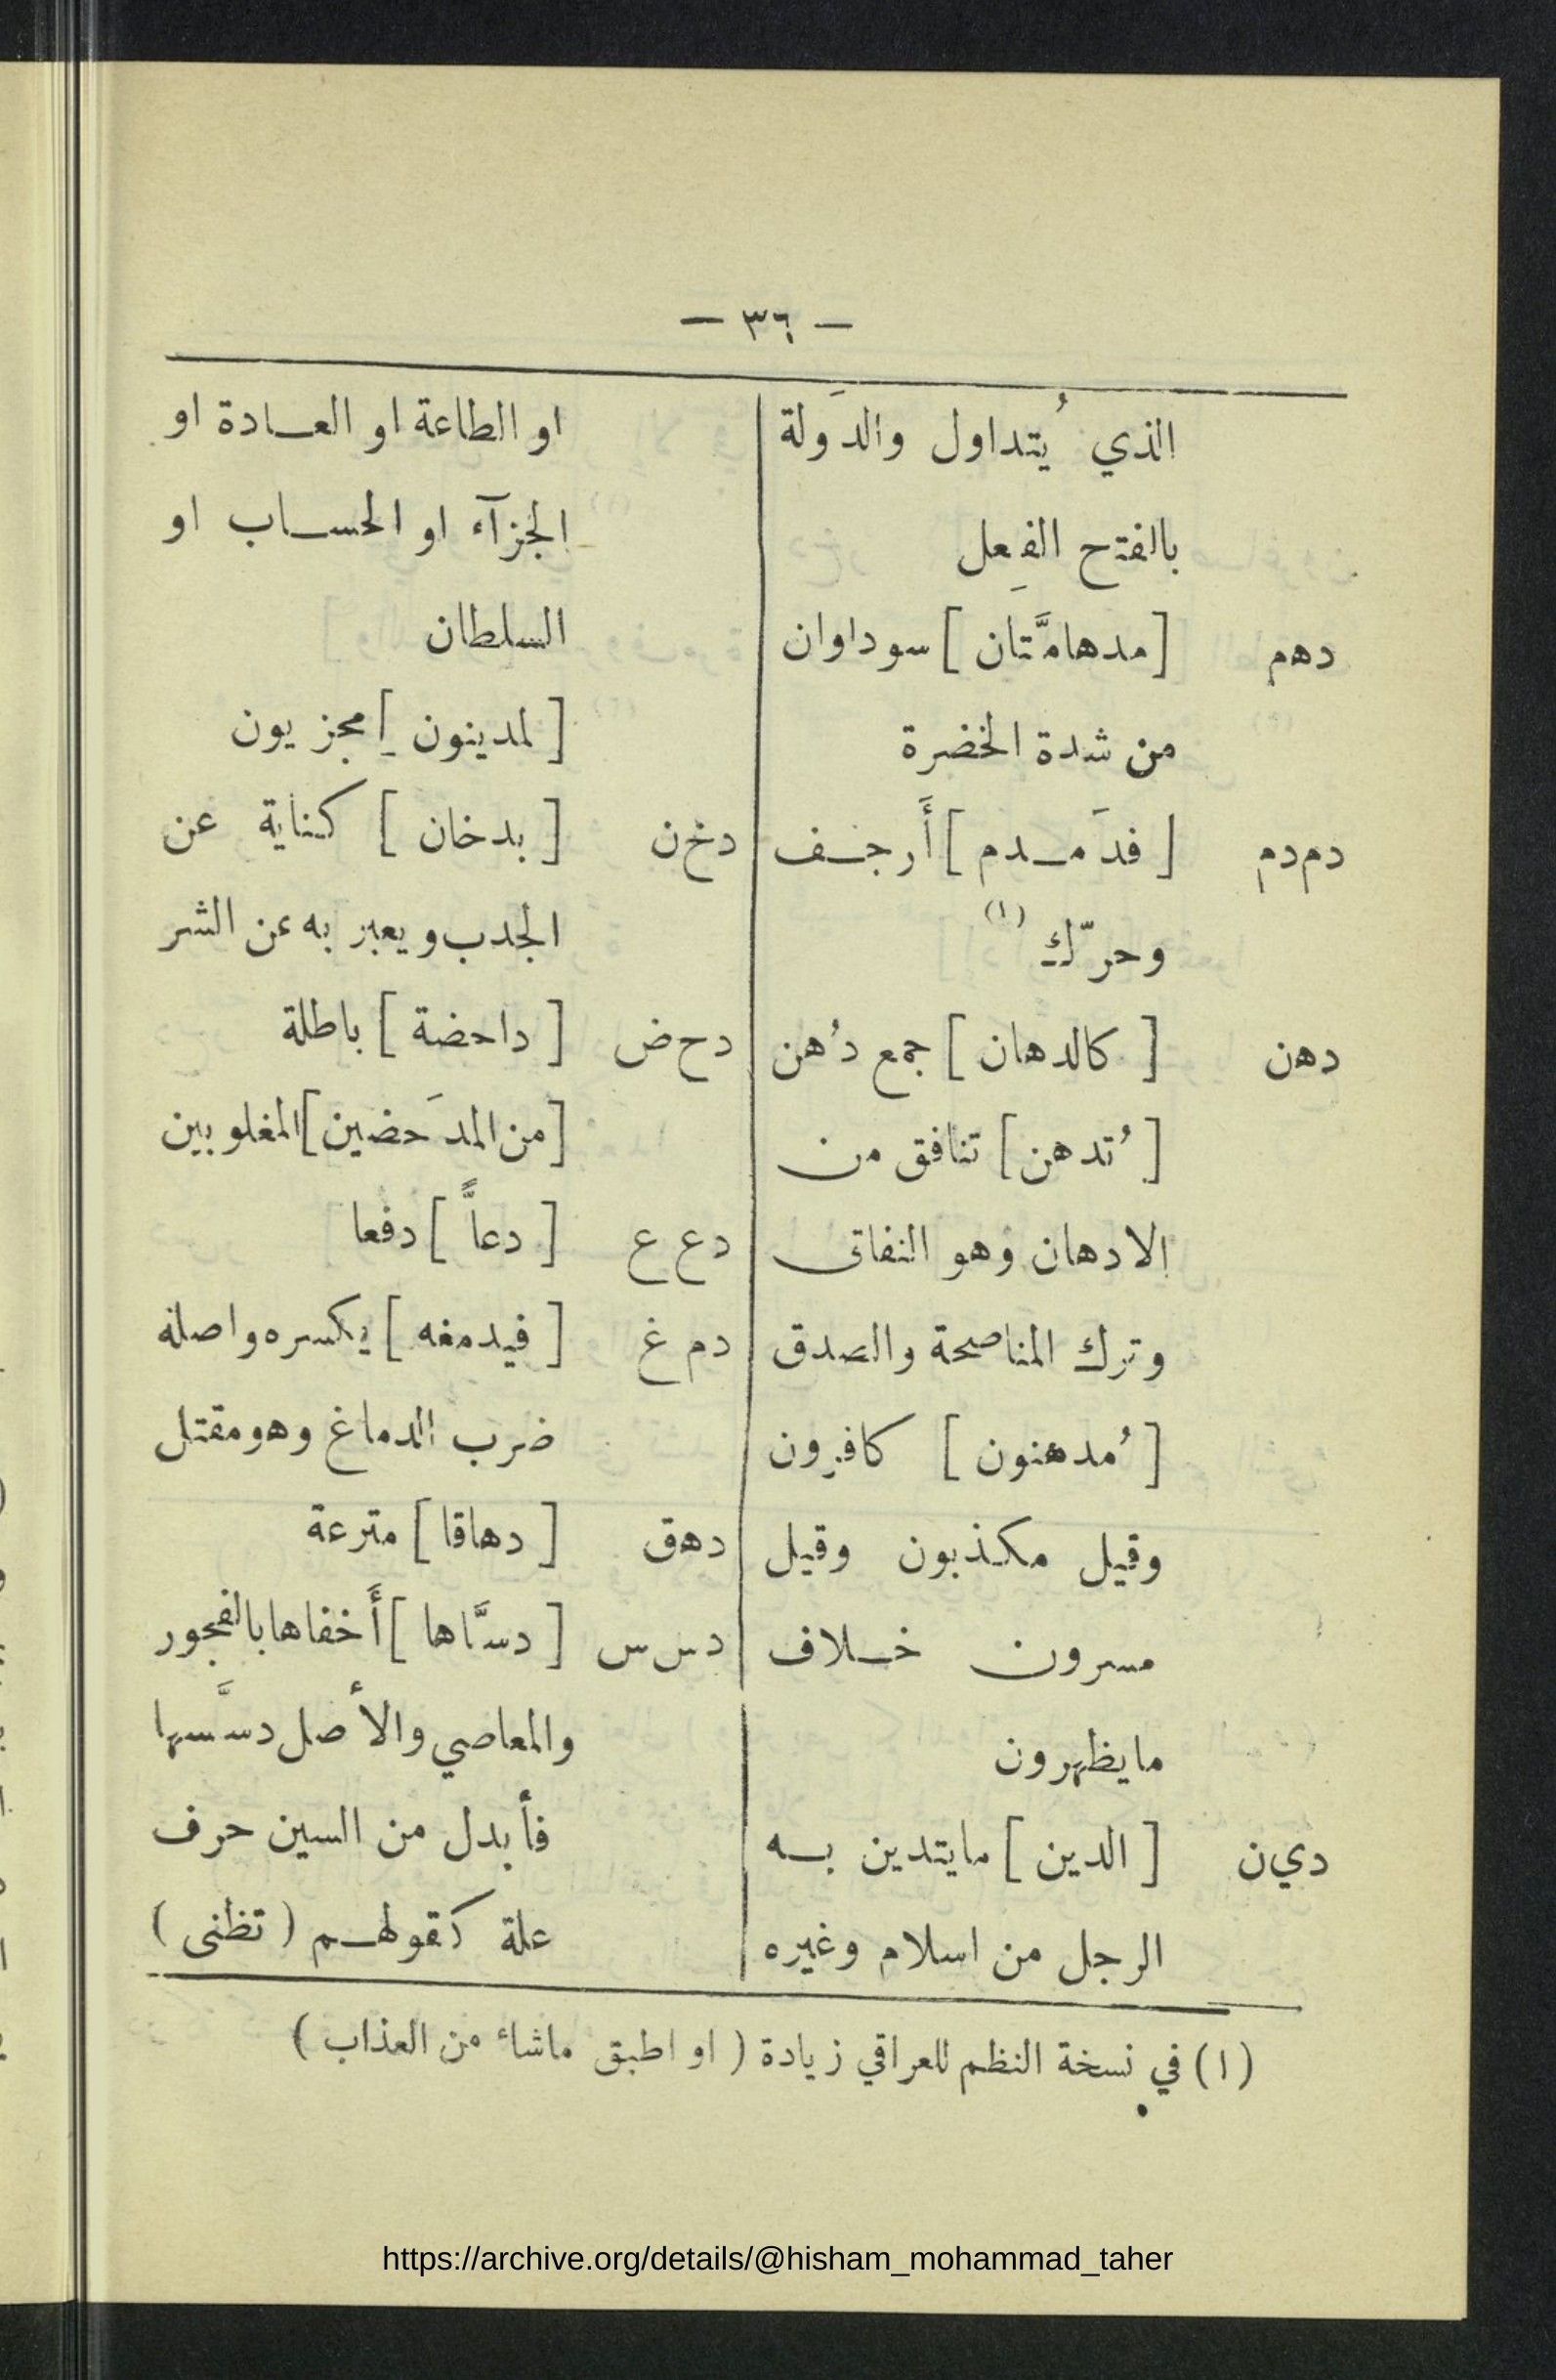 — ٣٦ —
الذي يُتداول والدَولة
بالفتح الفِعل
دهم [مدهامَّتان] سوداوان
من شدة الخضرة
دم دم [فدَمـدم] أَرجـف
وحرّك (١)
دهن [كالدهان] جمع دُهن
[تُدهن] تنافق من
الادهان وهو النفاق
وترك المناصحة والصدق
[مُدهنون] كافرون
وقيل مكذبون وقيل
مسرون خـلاف
مايظهرون
دي ن [الدين] مايتدين بـه
الرجل من اسلام وغيره
او الطاعة او العـادة او
الجزآء او الحسـاب او
السلطان
[لمدينون] مجزيون
دخ ن [بدخان] كناية عن
الجدب ويعبر به عن الشر
دح ض [داحضة] باطلة
[من المدَحضين] المغلوبين
دع ع [دعاًّ] دفعا
دم غ [فيدمغه] يكسره واصله
ضرب الدماغ وهو مقتل
دهق [دهاقا] مترعة
دس س [دسَّاها] أَخفاها بالفجور
والمعاصي والأصل دسَّسها
فأبدل من السين حرف
علة كقولهـم (تظنى)
(١) في نسخة النظم للعراقي زيادة (او اطبق ماشاء من العذاب)
https://archive.org/details/@hisham_mohammad_taher